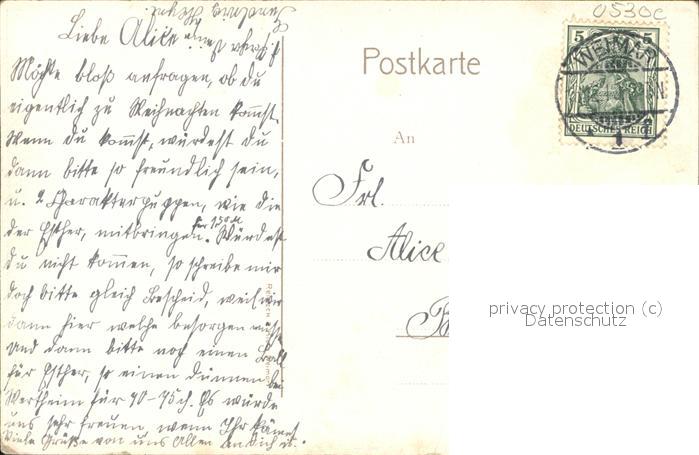 Liebe Alice
Möchte bloß anfragen, ob du
eigentlich zu Weihnachten kommst.
Wenn du kommst, würdest du
dann bitte so freundlich sein,
u. 2 Charakterpuppen, wie die
der Esther, mitbringen. Würdest
für 1,50 M
du nicht kommen, so schreibe mir
doch bitte gleich Bescheid, weil wir
dann hier welche besorgen
Und dann bitte noch einen Ball
für Esther, so einen dünnen bei
Wertheim für 40-75 ch. Es würde
uns sehr freuen wenn Ihr kämet
Viele Grüße von uns Allen an dich u.
Postkarte
An
Frl.
Alice
0530c
5 5
WEIMAR
DEUTSCHES REICH
privacy protection (c)
Datenschutz